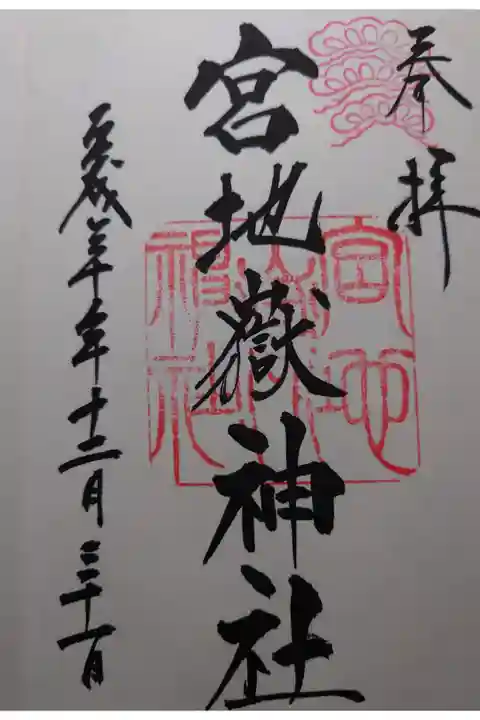 奉拝
宮地嶽神社
平成三十年十二月三十一日
宮地嶽神社